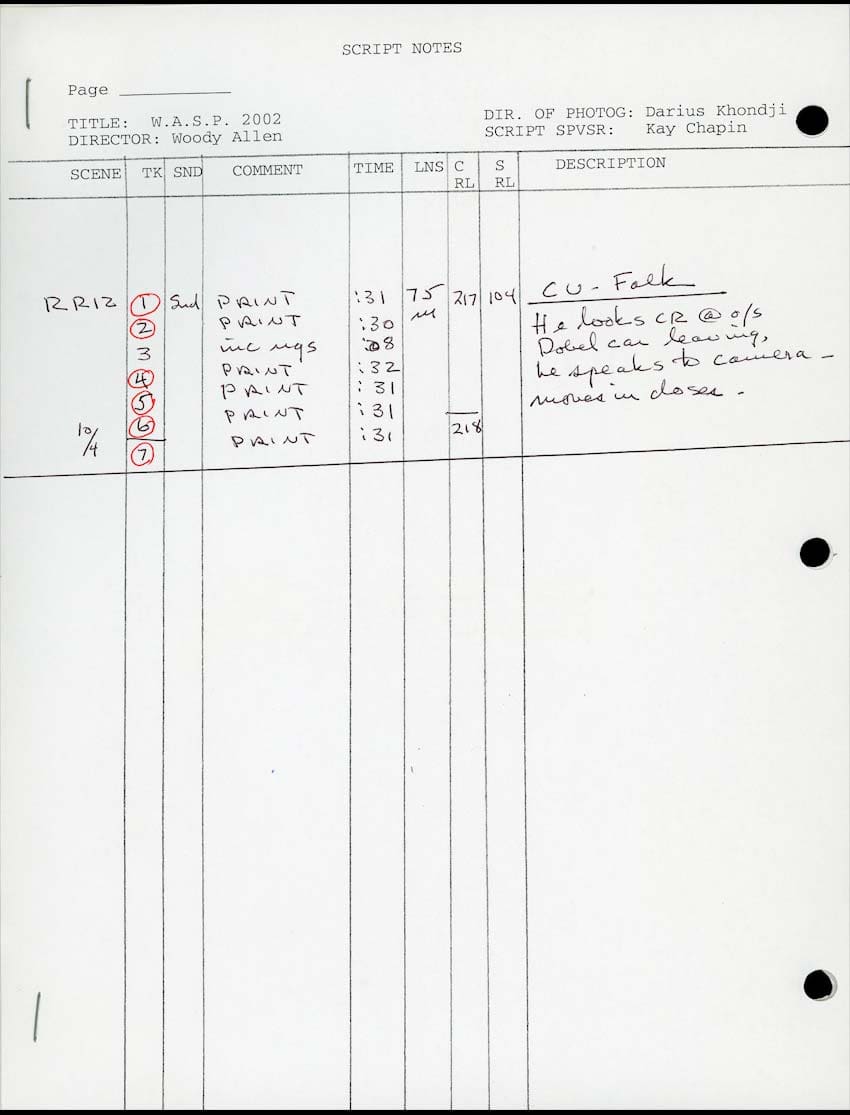 SCRIPT NOTES
Page
TITLE: W.A.S.P. 2002
DIR. OF PHOTOG: Darius Khondji
DIRECTOR: Woody Allen
SCRIPT SPVSR: Kay Chapin
SCENE TK SND COMMENT TIME LNS C RL S RL DESCRIPTION
CU - Falk
RR12 1 Snd PRINT :31 75 m 217 104
He looks CR @ o/s
2 PRINT :30
Dobel car leaving,
3 inc ngs :08
he speaks to camera -
4 PRINT :32
moves in closer.
5 PRINT :31
6 PRINT :31
10/4 7 PRINT :31 218